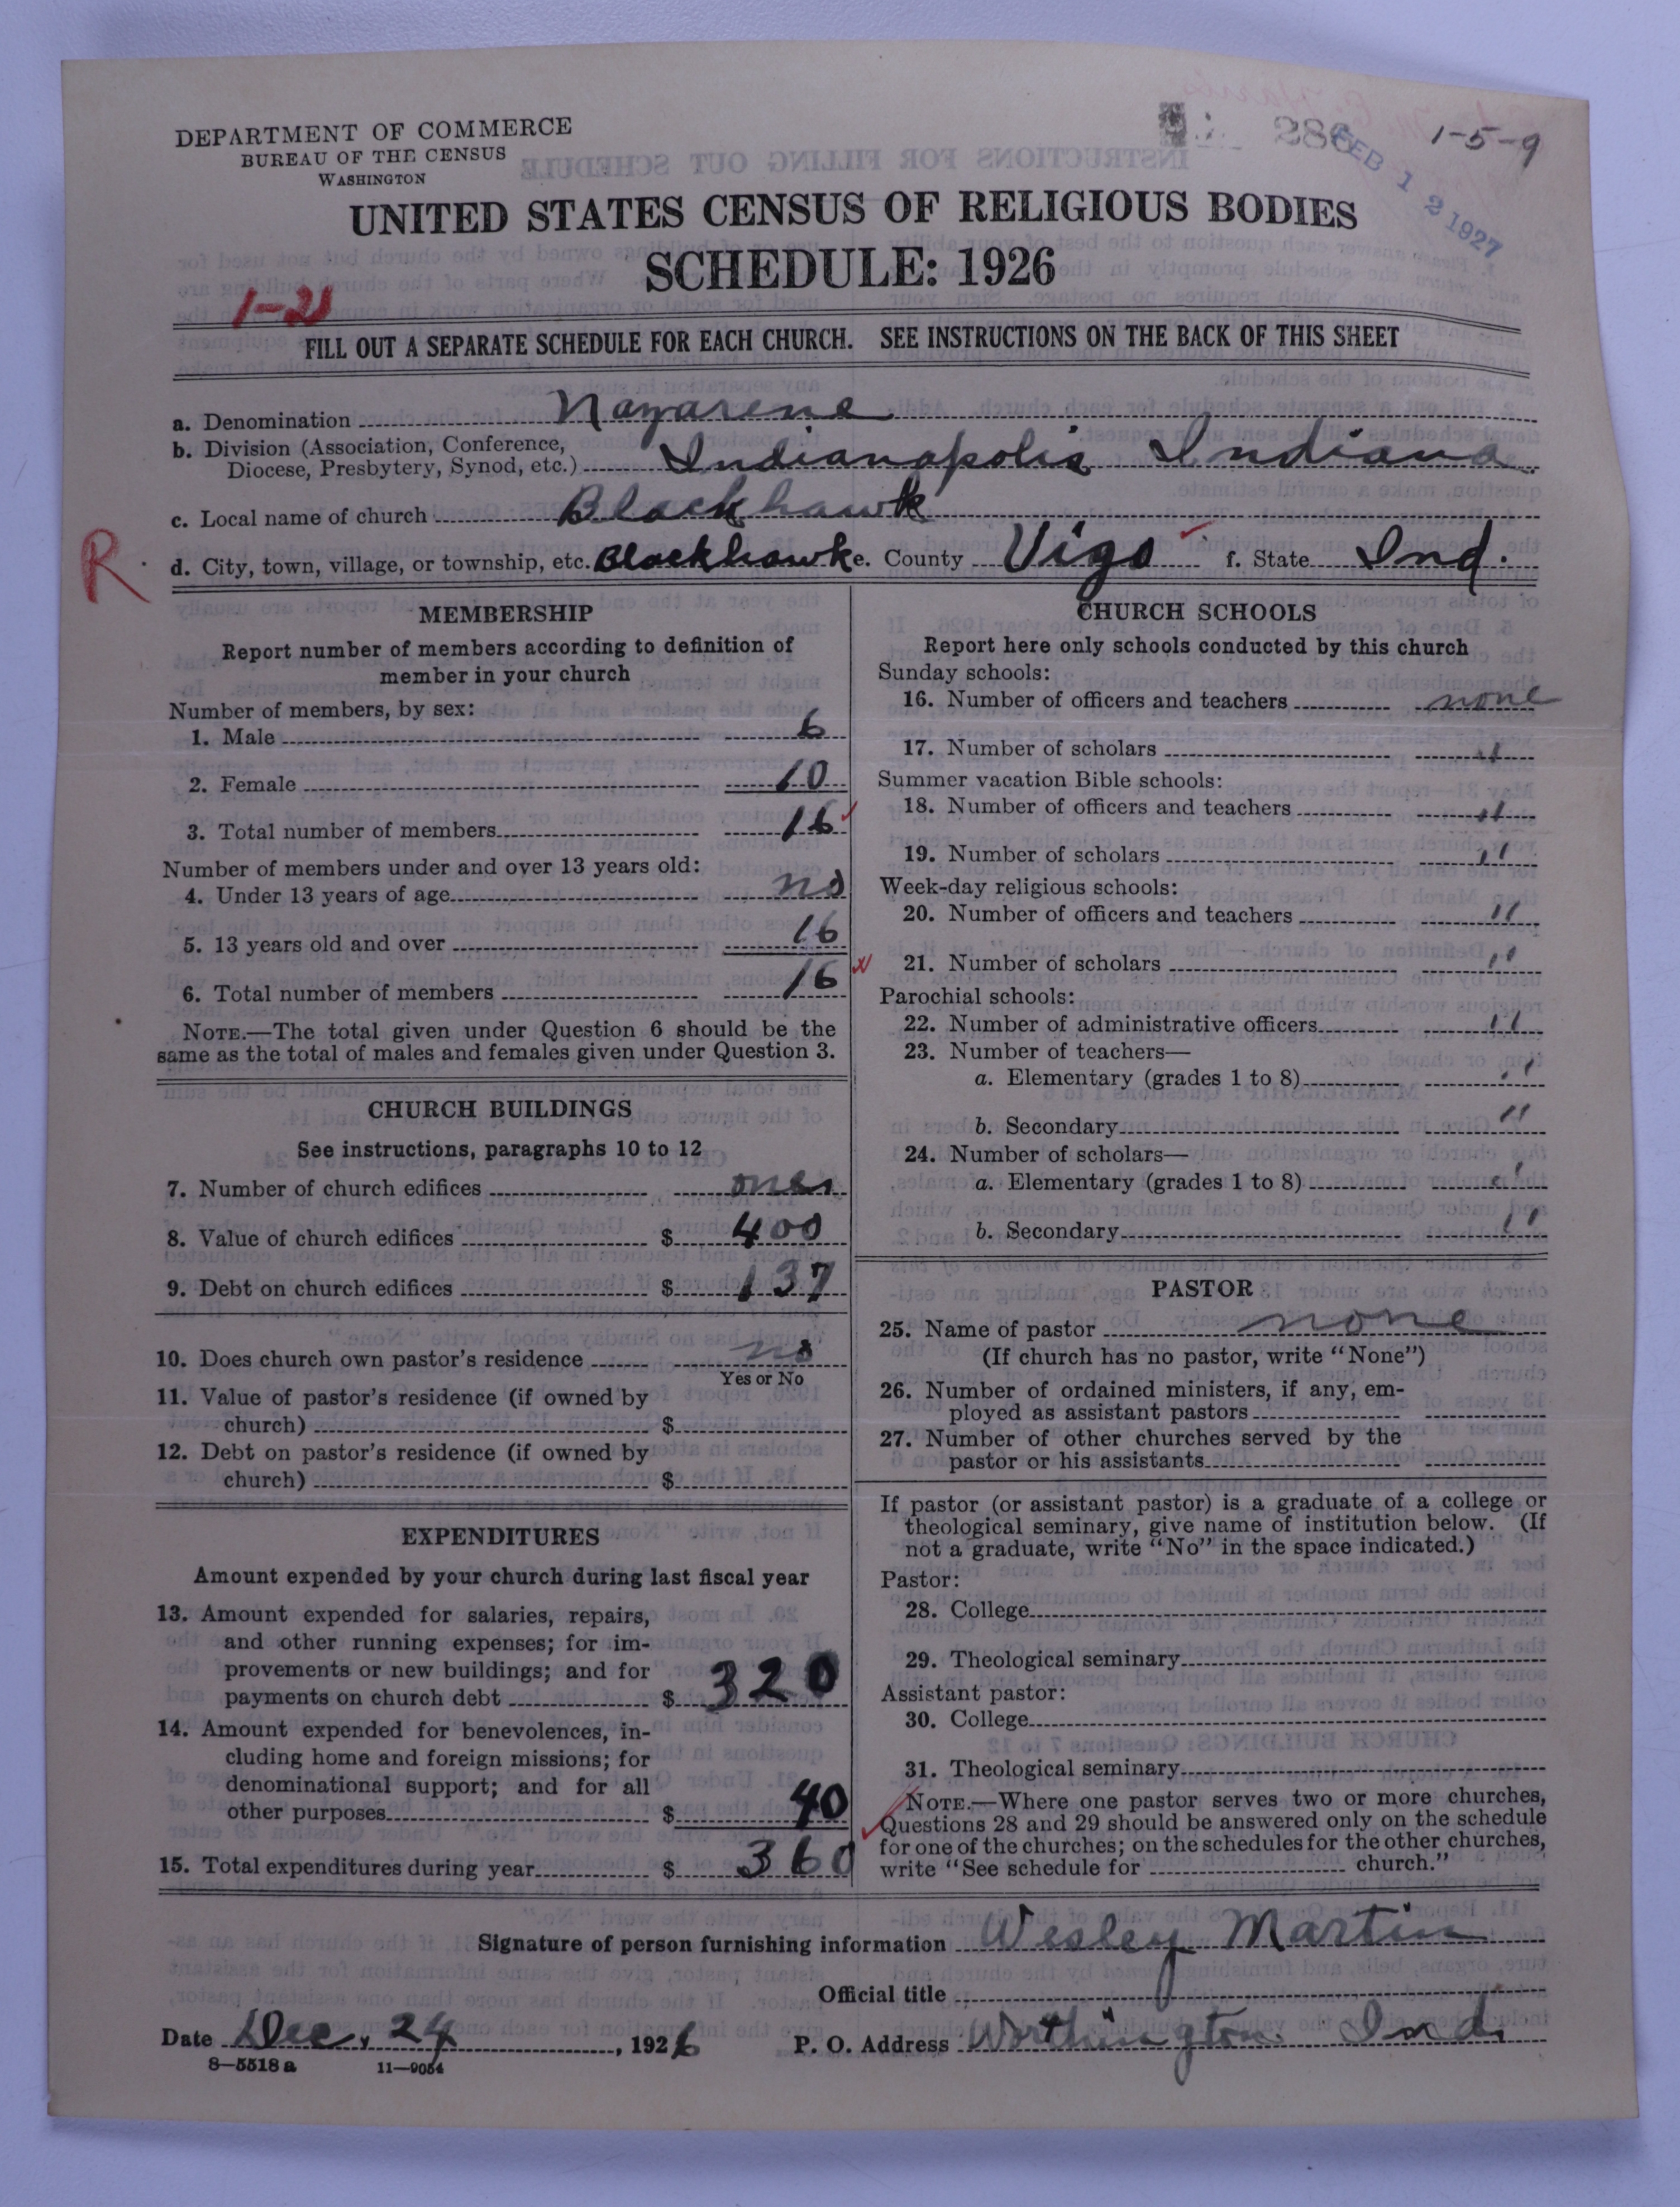 DEPARTMENT OF COMMERCE
BUREAU OF THE CENSUS
WASHINGTON
286
FEB 12 1927
1-5-9
UNITED STATES CENSUS OF RELIGIOUS BODIES
SCHEDULE: 1926
1-21
FILL OUT A SEPARATE SCHEDULE FOR EACH CHURCH. SEE INSTRUCTIONS ON THE BACK OF THIS SHEET
a. Denomination Nazarene
b. Division (Association, Conference,
Diocese, Presbytery, Synod, etc.) Indianapolis Indiana
c. Local name of church Blackhawk
R
d. City, town, village, or township, etc. Blackhawk e. County Vigo f. State Ind.
MEMBERSHIP
Report number of members according to definition of
member in your church
Number of members, by sex:
1. Male 6
2. Female 10
3. Total number of members 16
Number of members under and over 13 years old:
4. Under 13 years of age no
5. 13 years old and over 16
6. Total number of members 16
NOTE.—The total given under Question 6 should be the
same as the total of males and females given under Question 3.
CHURCH BUILDINGS
See instructions, paragraphs 10 to 12
7. Number of church edifices one
8. Value of church edifices $ 400
9. Debt on church edifices $ 137
10. Does church own pastor's residence no
Yes or No
11. Value of pastor's residence (if owned by
church) $
12. Debt on pastor's residence (if owned by
church) $
EXPENDITURES
Amount expended by your church during last fiscal year
13. Amount expended for salaries, repairs,
and other running expenses; for im-
provements or new buildings; and for
payments on church debt $ 320
14. Amount expended for benevolences, in-
cluding home and foreign missions; for
denominational support; and for all
other purposes $ 40
15. Total expenditures during year $ 360
CHURCH SCHOOLS
Report here only schools conducted by this church
Sunday schools:
16. Number of officers and teachers none
17. Number of scholars "
Summer vacation Bible schools:
18. Number of officers and teachers "
19. Number of scholars "
Week-day religious schools:
20. Number of officers and teachers "
21. Number of scholars "
Parochial schools:
22. Number of administrative officers "
23. Number of teachers—
a. Elementary (grades 1 to 8) "
b. Secondary "
24. Number of scholars—
a. Elementary (grades 1 to 8) "
b. Secondary "
PASTOR
25. Name of pastor none
(If church has no pastor, write "None")
26. Number of ordained ministers, if any, em-
ployed as assistant pastors
27. Number of other churches served by the
pastor or his assistants
If pastor (or assistant pastor) is a graduate of a college or
theological seminary, give name of institution below. (If
not a graduate, write "No" in the space indicated.)
Pastor:
28. College
29. Theological seminary
Assistant pastor:
30. College
31. Theological seminary
NOTE.—Where one pastor serves two or more churches,
Questions 28 and 29 should be answered only on the schedule
for one of the churches; on the schedules for the other churches,
write "See schedule for church."
Signature of person furnishing information Wesley Martin
Official title
Date Dec, 24, 1926 P. O. Address Worthington Ind.
8—5518 a 11—9054